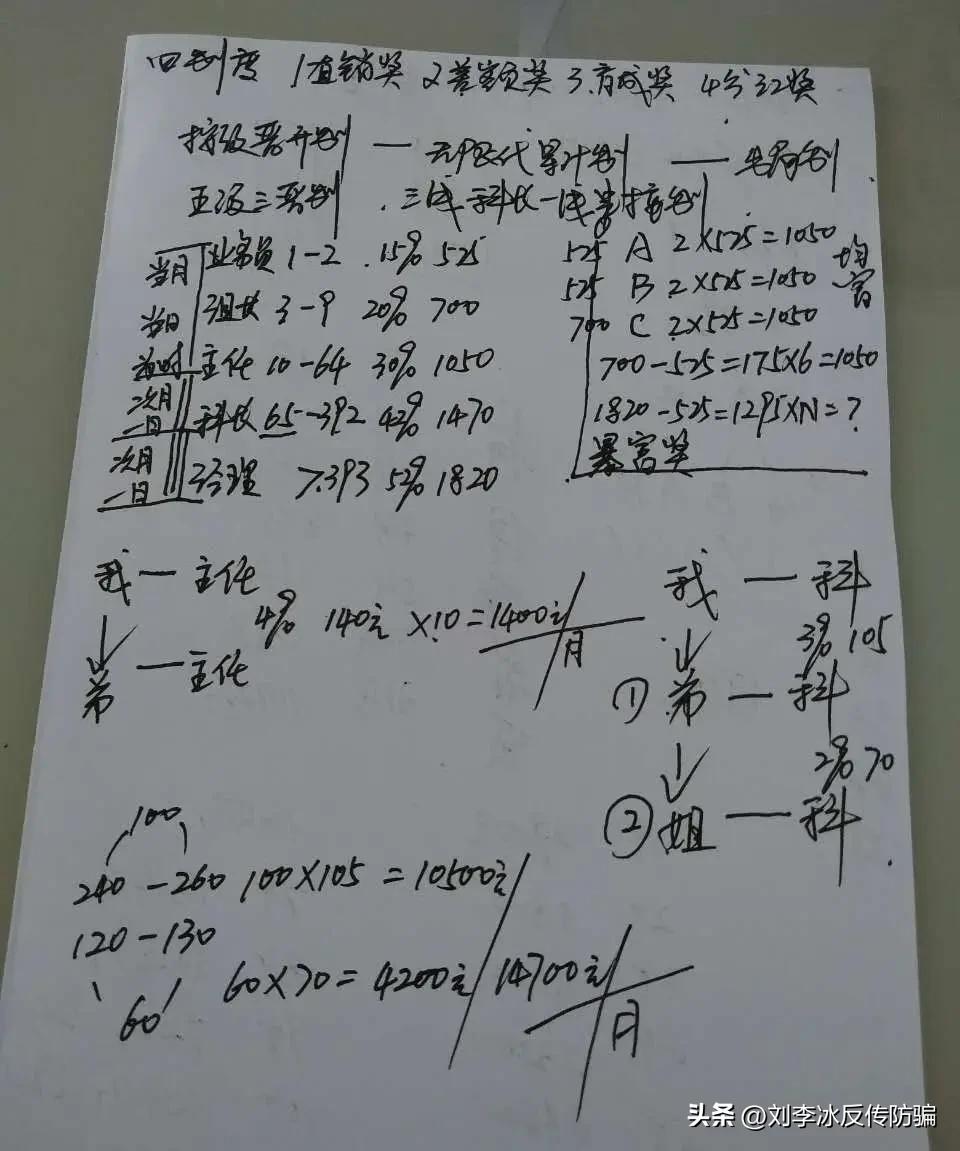 四制度 1直销奖 2差额奖 3.育成奖 4分红奖
按级晋升制 — 无限代累计制 — 出局制
五级三晋制 三线科长一线
当月 业务员 1-2 15% 525
当日 组长 3-9 20% 700
当时 主任 10-64 30% 1050
次月一日 科长 65-392 42% 1470
次月一日 经理 >393 52% 1820
525 A 2×525=1050
525 B 2×525=1050
700 C 2×525=1050
均富
700-525=175×6=1050
1820-525=1295×N=?
暴富奖
我 — 主任
4% 140元 ×10=1400元/月
弟 — 主任
我 — 科
3% 105
① 弟 — 科
2% 70
② 姐 — 科
100
240-260 100×105=10500元
120-130
60×70=4200元 14700元/月
60
头条 @刘李冰反传防骗